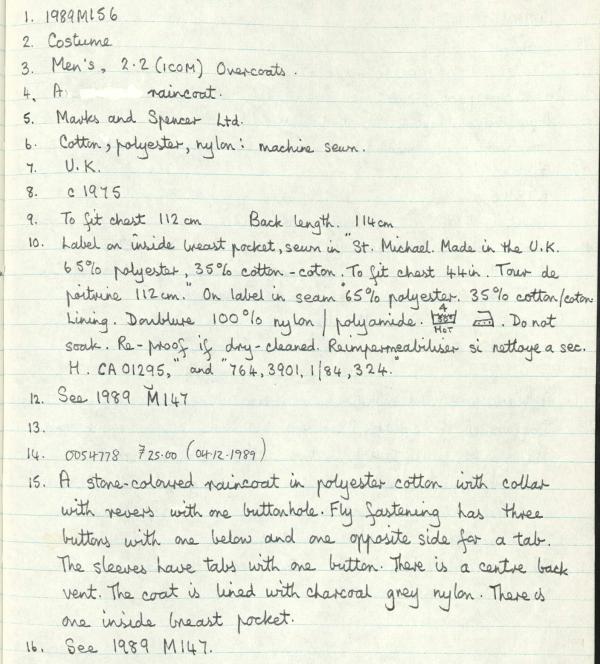 1. 1989M156
2. Costume
3. Men's, 2.2 (ICOM) Overcoats.
4. A raincoat.
5. Marks and Spencer Ltd.
6. Cotton, polyester, nylon: machine sewn.
7. U.K.
8. c 1975
9. To fit chest 112 cm Back length. 114cm
10. Label on inside breast pocket, sewn in "St. Michael. Made in the U.K.
65% polyester, 35% cotton-coton. To fit chest 44in. Tour de
poitrine 112cm." On label in seam "65% polyester. 35% cotton/coton
Lining. Doublure 100% nylon/polyamide. 4 HOT. Do not
soak. Re-proof if dry-cleaned. Reimpermeabiliser si nettoye a sec.
H. CA 01295," and "764, 3901, 1/84, 324."
12. See 1989 M147
13.
14. 0054778 25.00 (04.12.1989)
15. A stone-coloured raincoat in polyester cotton with collar
with revers with one buttonhole. Fly fastening has three
buttons with one below and one opposite side for a tab.
The sleeves have tabs with one button. There is a centre back
vent. The coat is lined with charcoal grey nylon. There is
one inside breast pocket.
16. See 1989 M147.